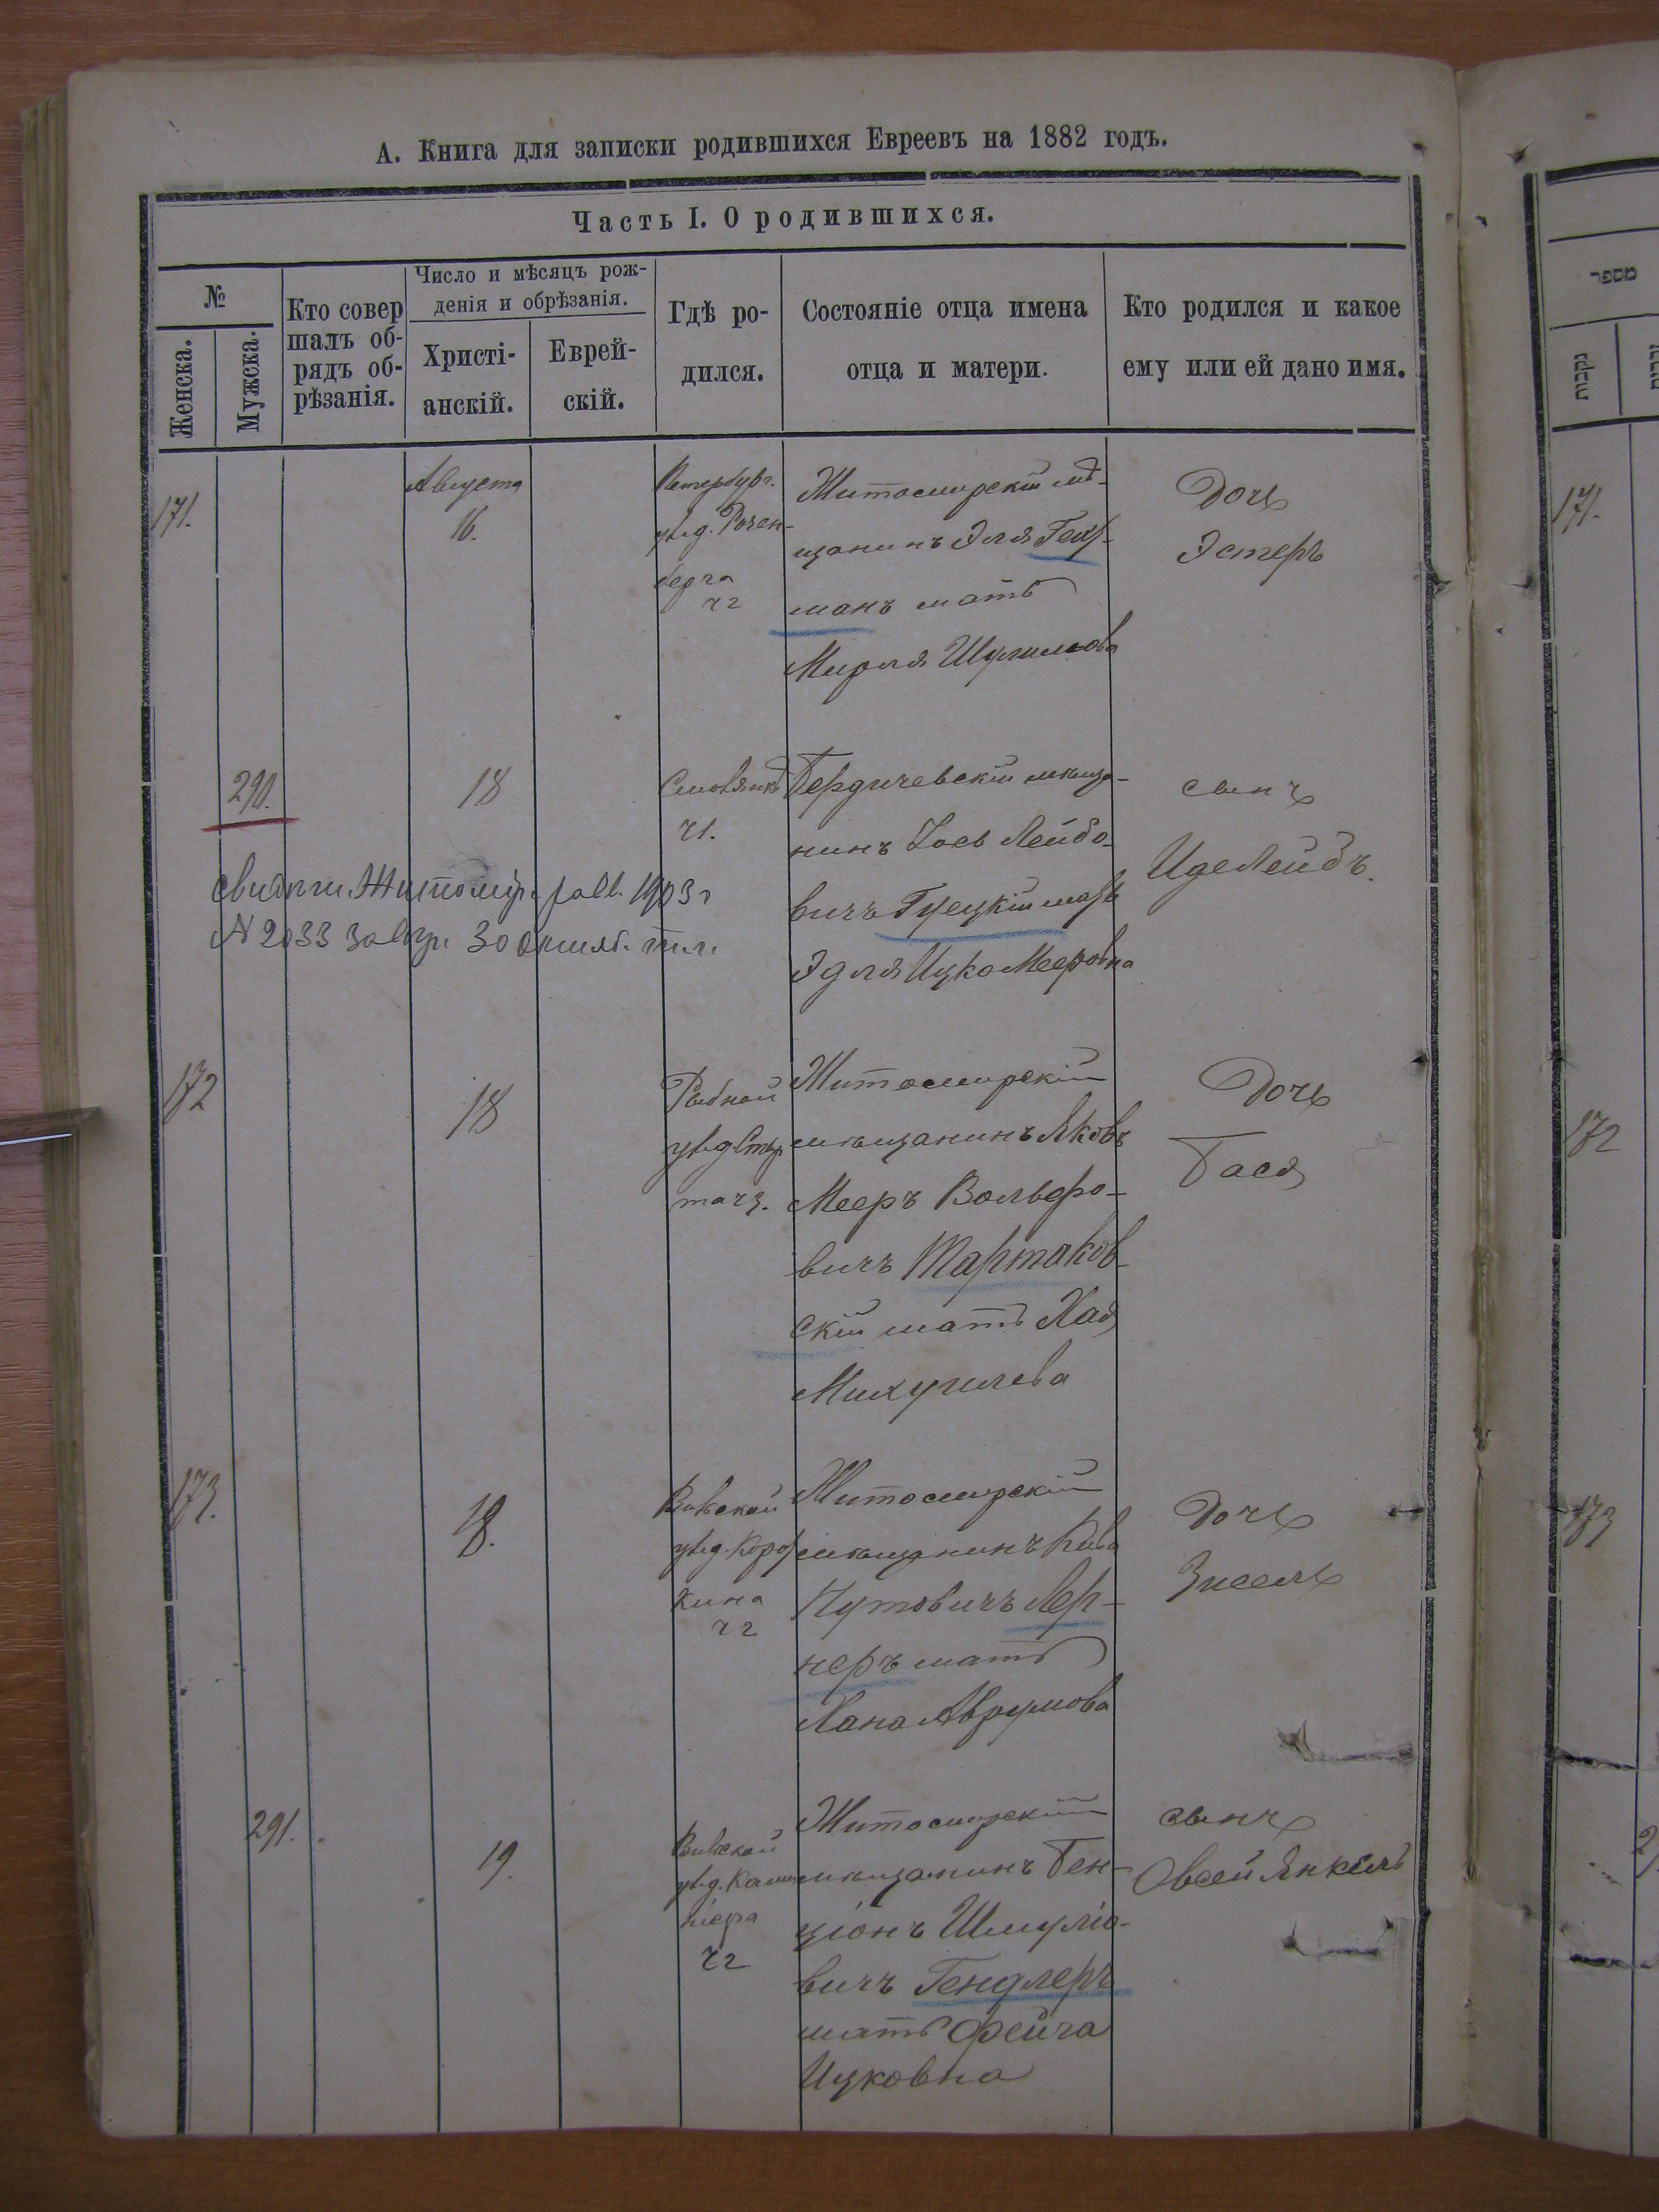 А. Книга для записки родившихся Евреевъ на 1882 годъ.
Часть I. О родившихся.
№
Женска.
Мужска.
Кто совер
шалъ об-
рядъ об-
рѣзанія.
Число и мѣсяцъ рож-
денія и обрѣзанія.
Христі-
анскій.
Еврей-
скій.
Гдѣ ро-
дился.
Состояніе отца имена
отца и матери.
Кто родился и какое
ему или ей дано имя.
171.
Августа
16.
Петербург.
ул д. Розен-
берга
ч 2
Житомирскій мѣ-
щанинъ Эля
манъ мать
Мирля Шулимова
Дочь
Эстеръ
290.
18
ч 1.
Бердичевскій мѣща-
нинъ Іось Лейбо-
вичъ мать
Эдля ИцкоМееровна
сынъ
ИцеЛейбъ.
Житомір. 1903 г
№ 2033 30 т.г.
172
18
Рыбной
ул д
та ч 3.
Житомирскій
мѣщанинъ Яковъ
Мееръ Вольфо-
вичъ Тартаков-
скій мать Хая
Дочь
Бася
173.
18.
Кіевской
ул д. Кора
кина
ч 2
Житомирскій
мѣщанинъ Кива
Нутовичъ Лер-
неръ мать
Хана Аврумова
Дочь
Зисель
291.
19.
Кіевской
ул д.
ніера
ч 2
Житомирскій
мѣщанинъ Бен-
ціонъ Шмуліо-
вичъ Гендлеръ
мать Фейга
Ицковна
сынъ
Овсей Янкель
מספר
נקבות
171.
172
173